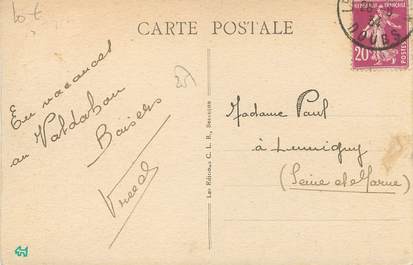 10 €
CARTE POSTALE
En vacances
au Valdahon
Baisers
Les Éditions C. L. B., Besançon
Madame Paul
à Lumigny
(Seine et Marne)
DOUBS
RÉPUBLIQUE FRANÇAISE
20
POSTES